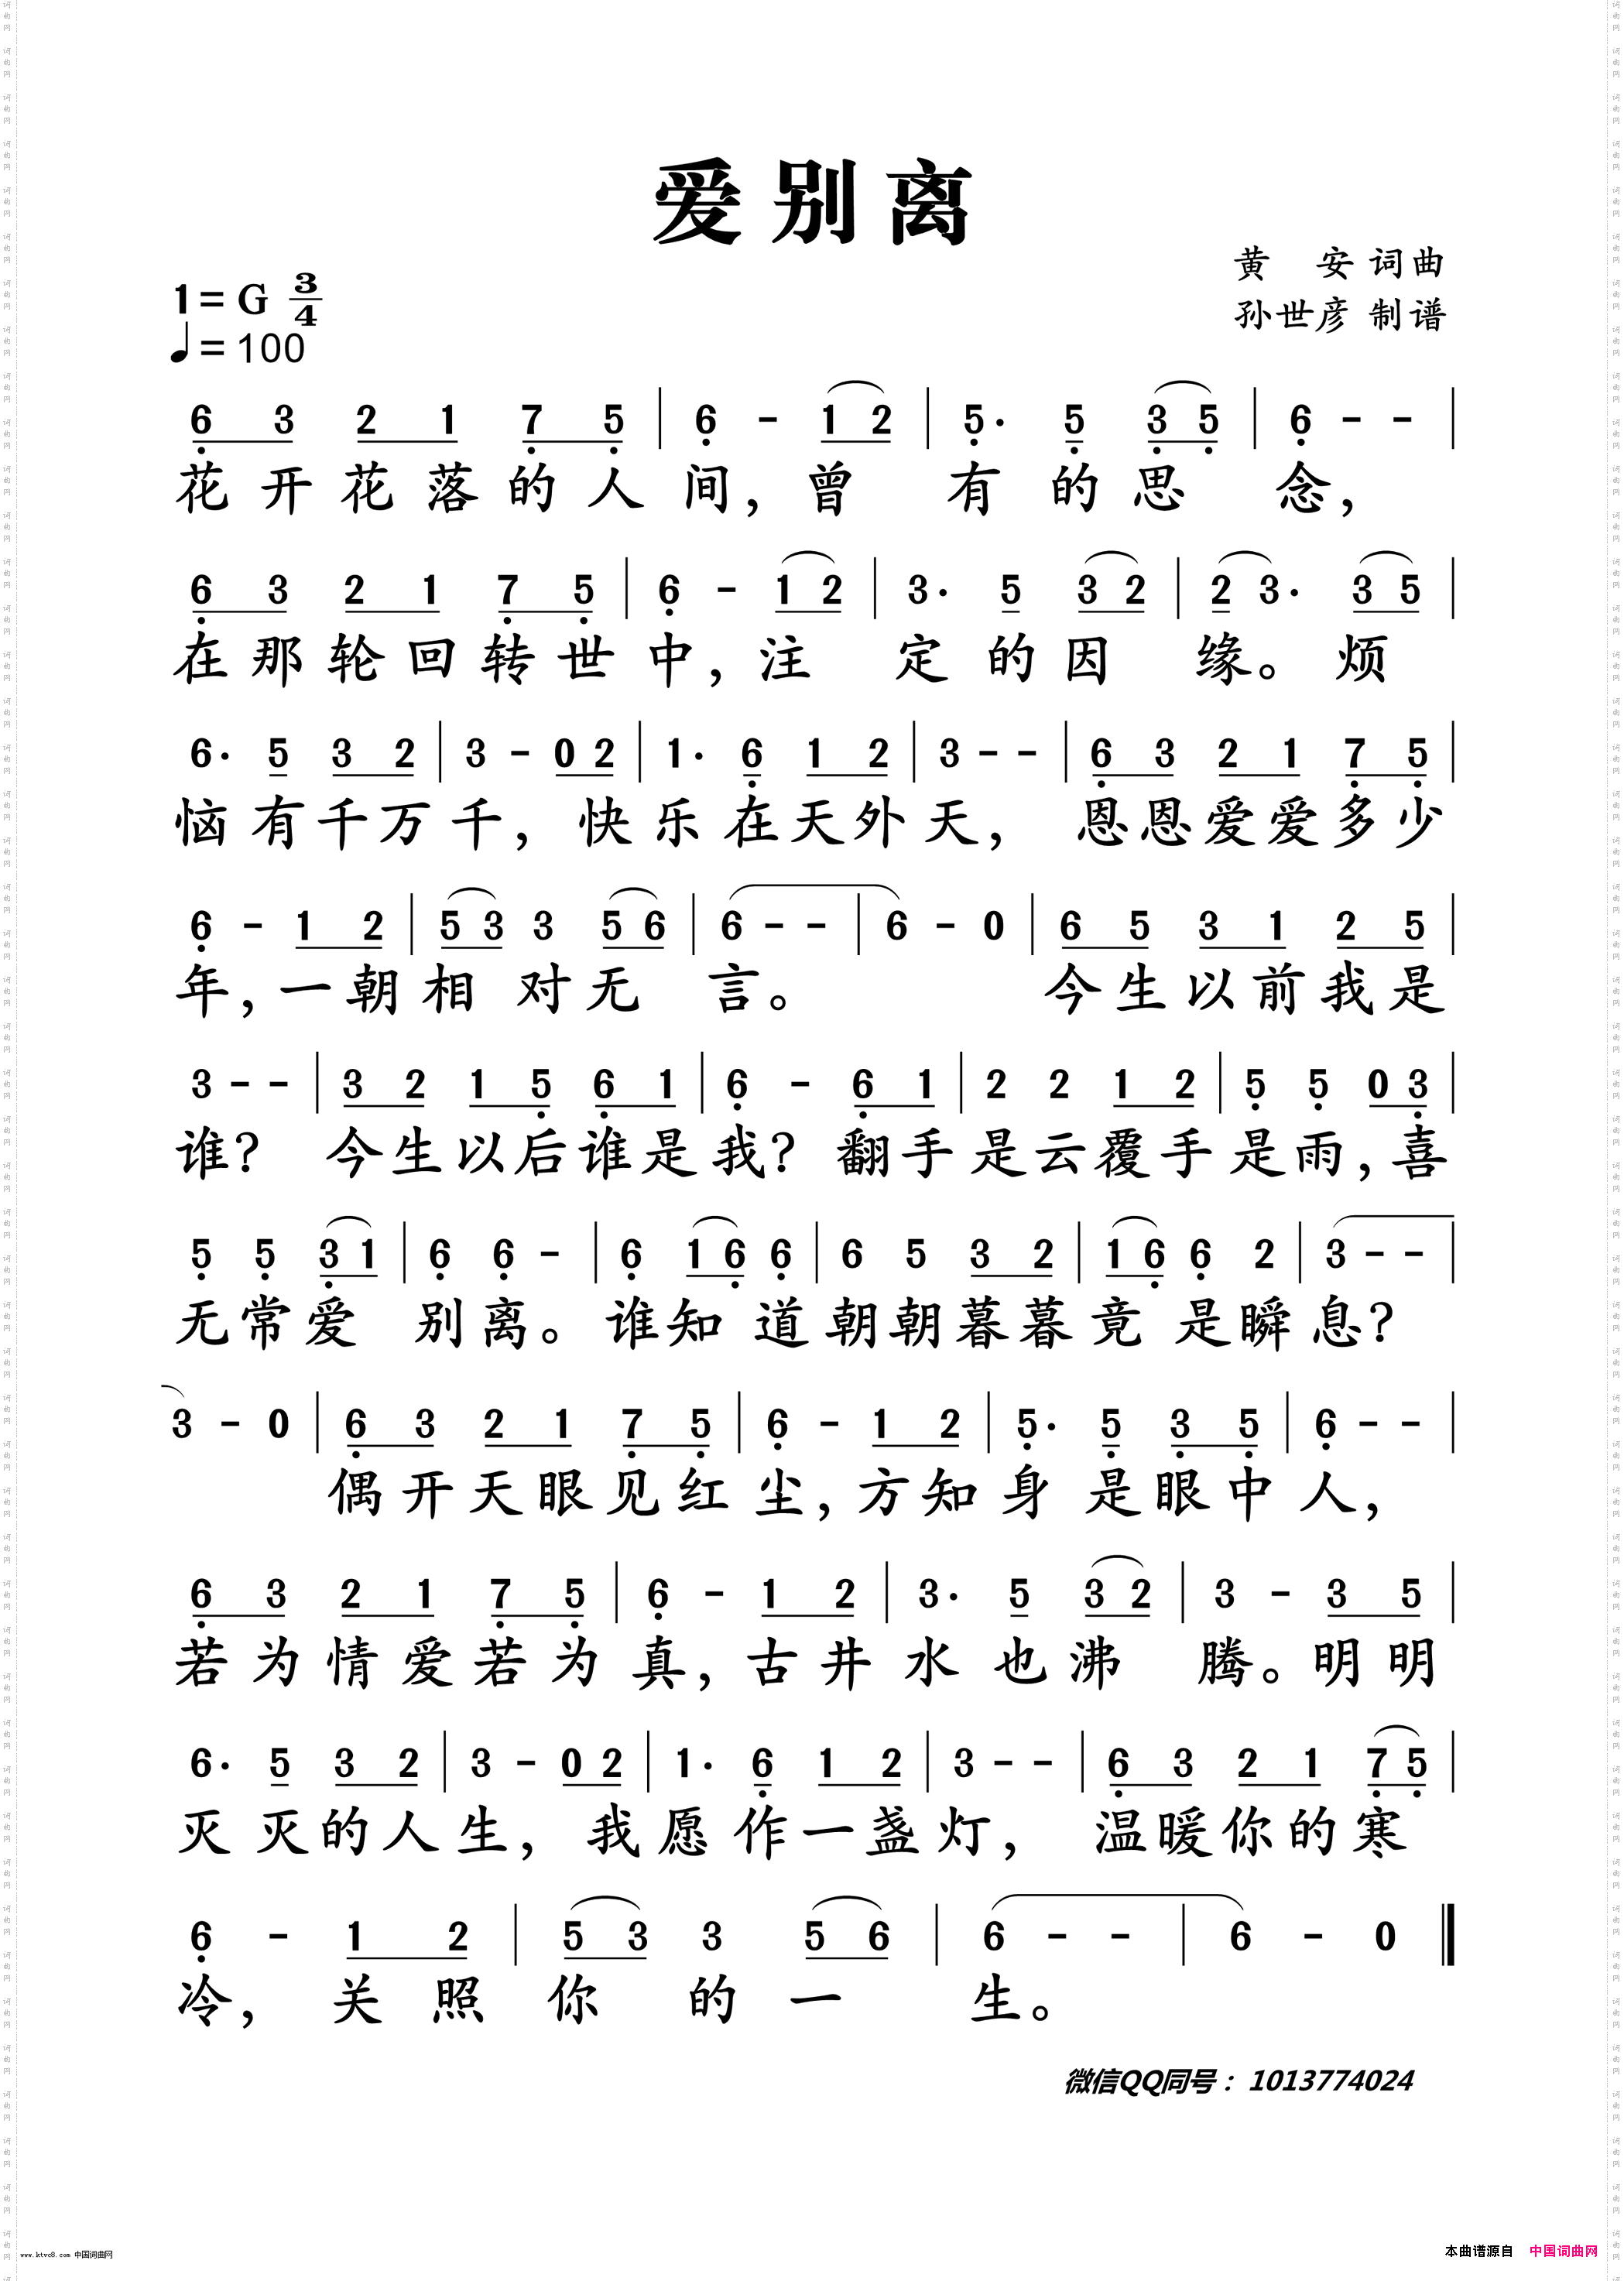 爱别离
黄 安 词曲
1= G 3/4
孙世彦 制谱
♩= 100
6 3 2 1 7 5 | 6 - 1 2 | 5· 5 3 5 | 6 - - |
花开花落的人间，曾有的思念，
6 3 2 1 7 5 | 6 - 1 2 | 3· 5 3 2 | 2 3· 3 5 |
在那轮回转世中，注定的因缘。烦
6· 5 3 2 | 3 - 0 2 | 1· 6 1 2 | 3 - - | 6 3 2 1 7 5 |
恼有千万千，快乐在天外天，恩恩爱爱多少
6 - 1 2 | 5 3 3 5 6 | 6 - - | 6 - 0 | 6 5 3 1 2 5 |
年，一朝相对无言。今生以前我是
3 - - | 3 2 1 5 6 1 | 6 - 6 1 | 2 2 1 2 | 5 5 0 3 |
谁？今生以后谁是我？翻手是云覆手是雨，喜
5 5 3 1 | 6 6 - | 6 1 6 6 | 6 5 3 2 | 1 6 6 2 | 3 - - |
无常爱别离。谁知道朝朝暮暮竟是瞬息？
3 - 0 | 6 3 2 1 7 5 | 6 - 1 2 | 5· 5 3 5 | 6 - - |
偶开天眼见红尘，方知身是眼中人，
6 3 2 1 7 5 | 6 - 1 2 | 3· 5 3 2 | 3 - 3 5 |
若为情爱若为真，古井水也沸腾。明明
6· 5 3 2 | 3 - 0 2 | 1· 6 1 2 | 3 - - | 6 3 2 1 7 5 |
灭灭的人生，我愿作一盏灯，温暖你的寒
6 - 1 2 | 5 3 3 5 6 | 6 - - | 6 - 0 ‖
冷，关照你的一生。
微信QQ同号：1013774024
www.ktvc8.com 中国词曲网
本曲谱源自 中国词曲网